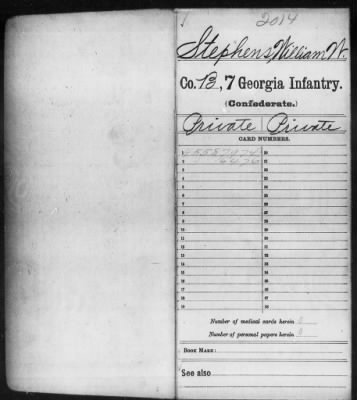 2014
Stephens, William W.
Co. B, 7 Georgia Infantry.
(Confederate.)
Private Private
CARD NUMBERS.
1 20
2 21
3 22
4 23
5 24
6 25
7 26
8 27
9 28
10 29
11 30
12 31
13 32
14 33
15 34
16 35
17 36
18 37
19 38
Number of medical cards herein 0
Number of personal papers herein 0
BOOK MARK:
See also